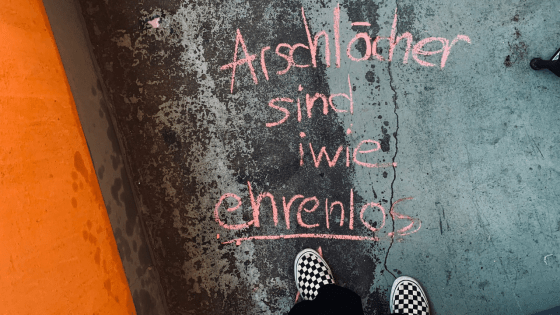 Arschlöcher
sind
iwie
ehrenlos